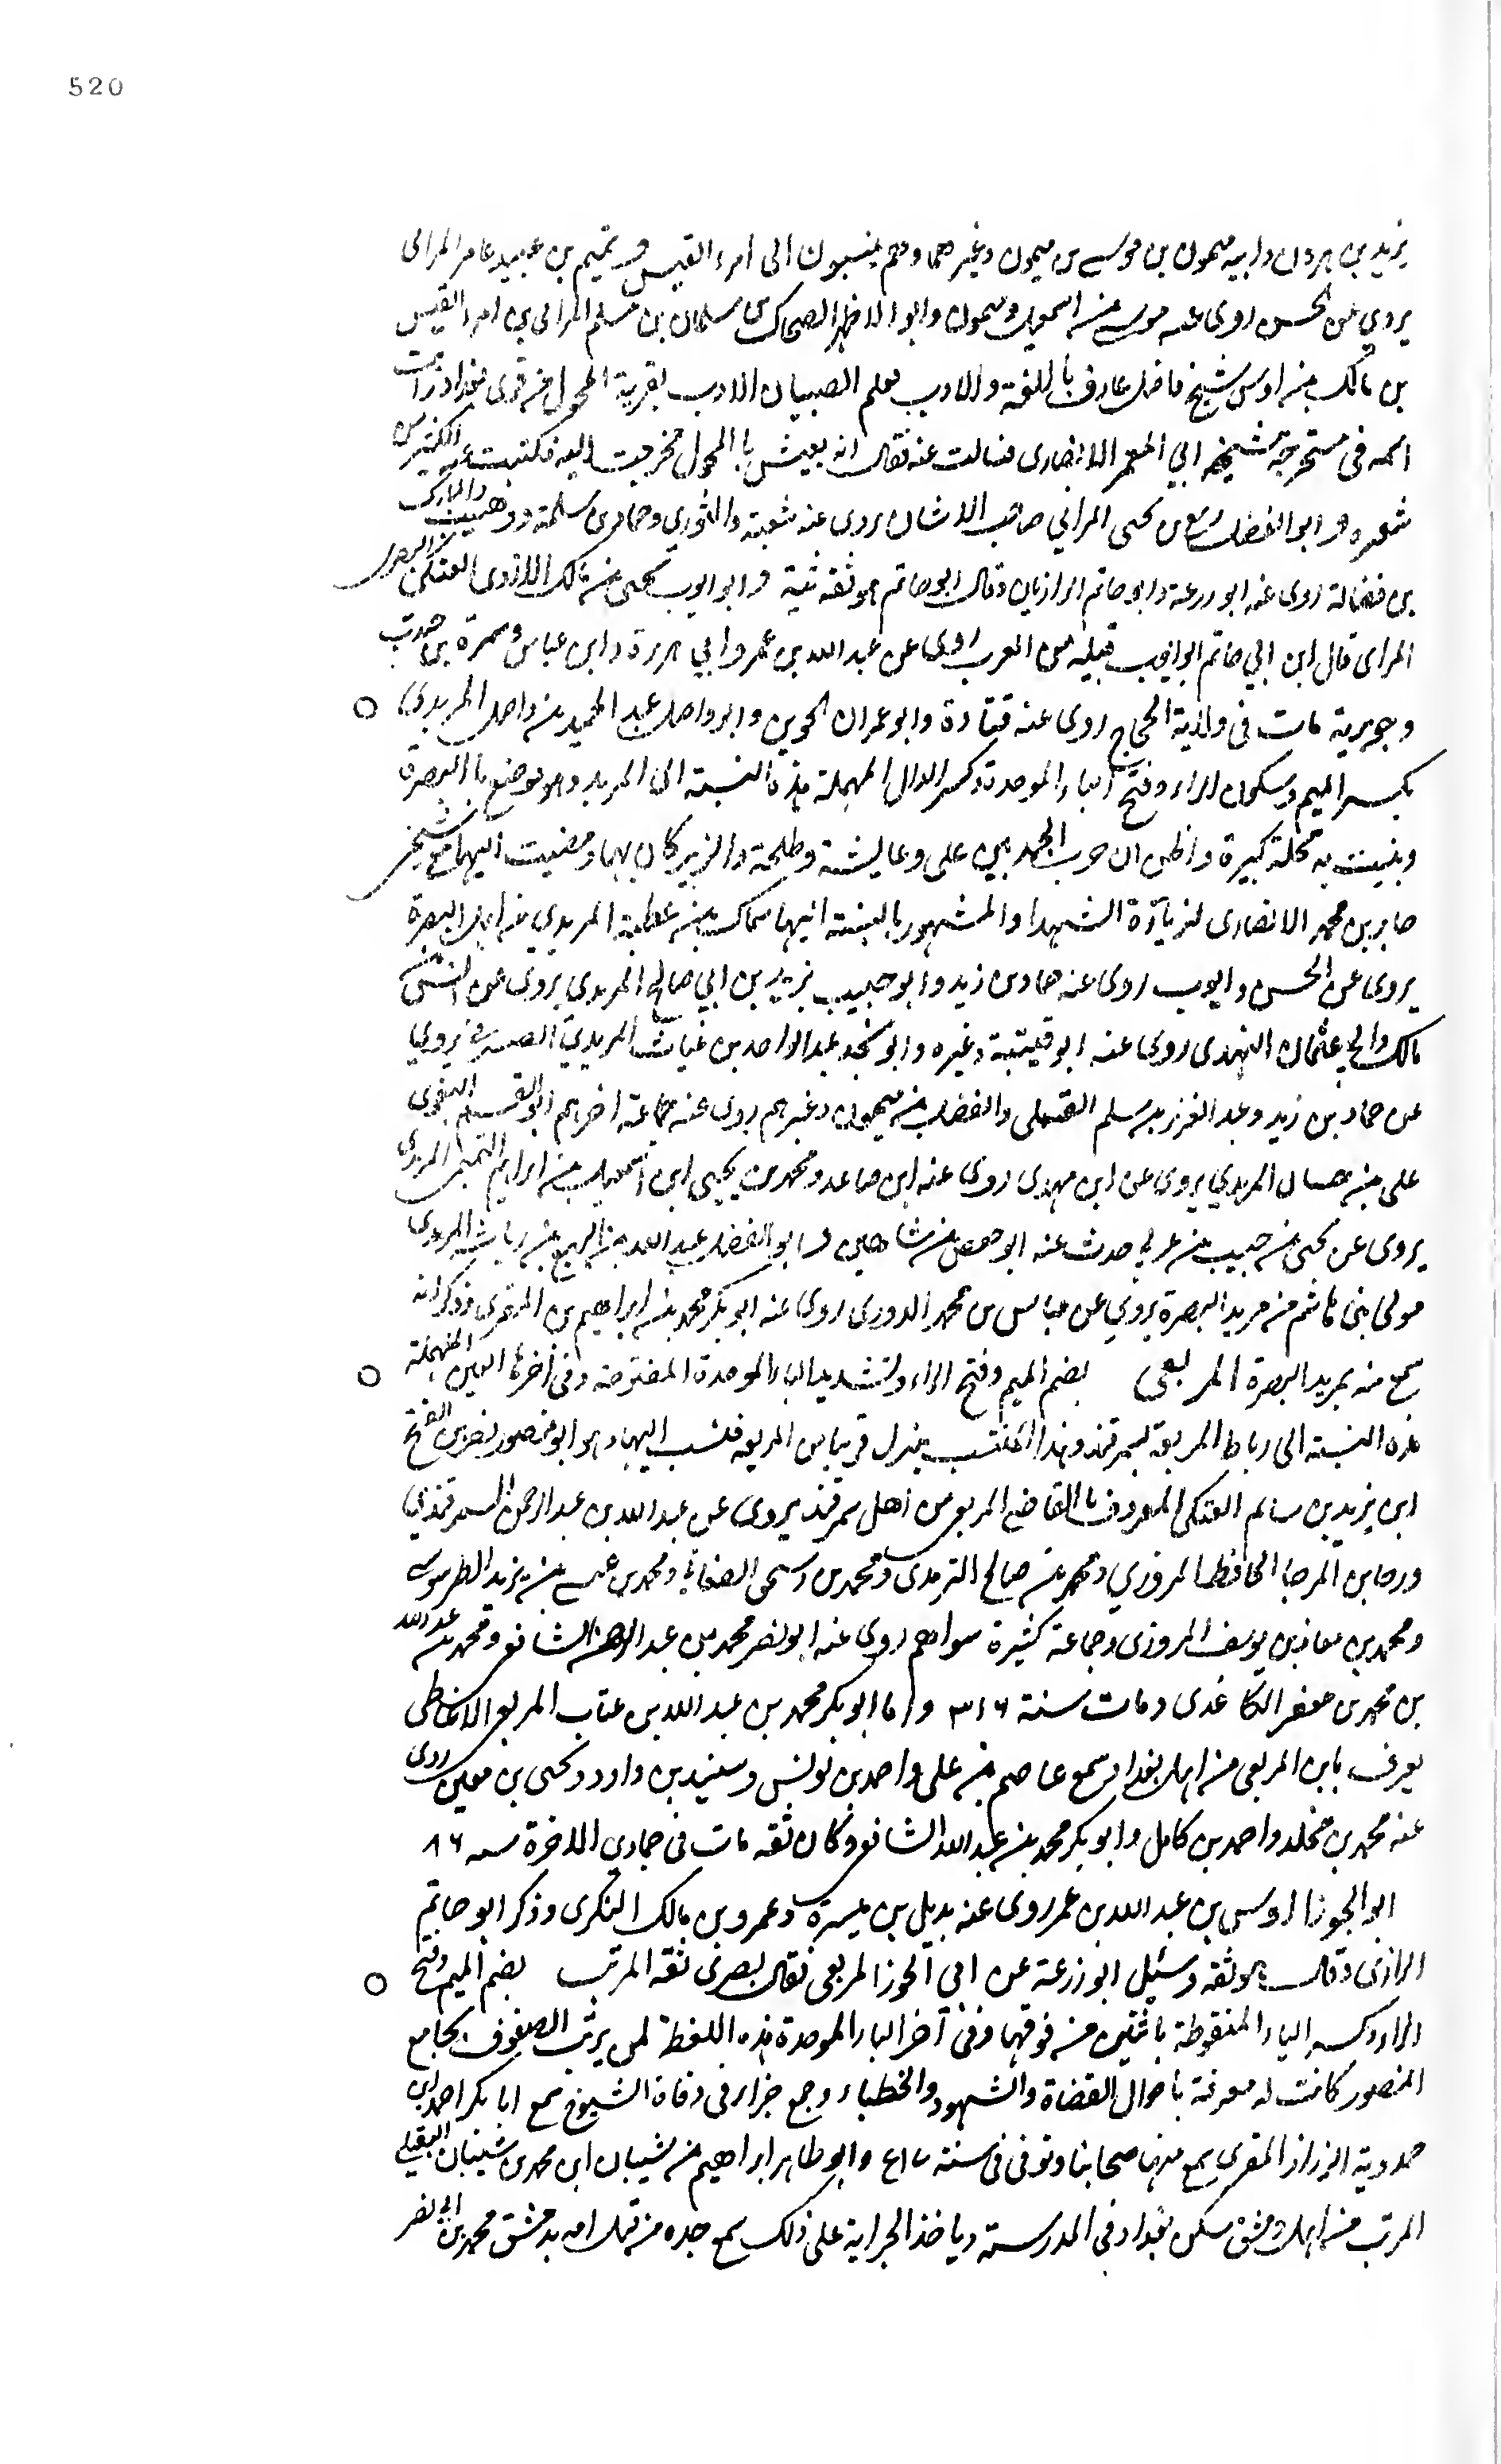 520
يزيد بن هرون وابيه ميمون بن موسى بن ميمون وغيرهما وهم ينسبون الى امرء القيس و تميم بن عبيد عامر المرائى
يروي عن الحسن روى عنه موسى بن اسمعيل وميمون وابو الازهر الضحاك بن سلمان بن مسلم المرائي بن امرء القيس
بن مالك بن اوس شيخ فاضل عارف باللغة والادب يعلم الصبيان الادب بقرية المحول من قرى بغداد رأيت
اسمه في مستخرجة شيخهم ابي المعمر الانصارى فسالت عنه فقال انه يعيش بالمحول فخرجت اليه فكتبت عنه الكثير من
شعره وابو الفضل ربيع بن يحيى المرائي صاحب الاشنان يروى عنه شعبة والثوري وحماد بن سلمة ووهيب والمبارك
بن فضالة روى عنه ابو زرعة وابو حاتم الرازيان وقال ابو حاتم هو ثقة ثبت و ابو ايوب يحيى بن مالك الازدى العتكى البصرى
المراى قال ابن ابي حاتم ابو ايوب قبيله من العرب روى عن عبد الله بن عمرو وابي هريرة وابن عباس وسمرة بن جندب
وجويرية مات في ولاية الحجاج روى عنه قتادة وابو عمران الجوني وابو واصل عبد الحميد بن واصل المربدي ○
بكسر الميم وسكون الراء وفتح الباء الموحدة وكسر الدال المهملة هذه النسبة الى المربد وهو موضع بالبصرة
وبنيت به محلة كبيرة واظن ان حرب الجمل بين على وعايشة وطلحة والزبير كان بها ومضيت اليها مع شيخى
جابر بن محمد الانصارى لزيارة الشهدا والمشهور بالنسبة اليها سماك بن عطية المربدي من اهل البصرة
يروى عن الحسن وايوب روى عنه حماد بن زيد وابو حبيب يزيد بن ابي صالح المربدي يروى عن انس بن
مالك وابي عثمان النهدى روى عنه ابو قتيبة وغيره وابو بحر عبد الواحد بن غياث المربدي الصيرفي يروي
عن حماد بن زيد وعبد العزيز بن مسلم القسملى والفضل بن ميمون وغيرهم روى عنه جماعة اخرهم ابو القسم البغوى
على بن حسان المربدي يروى عن ابن مهدى روى عنه ابن صاعد ومحمد بن يحيى ابن اسمعيل بن ابراهيم التميمى المربدى
يروى عن يحيى بن حبيب بن عربي حدث عنه ابو حفص بن شاهين و ابو الفضل عبد الله بن الربيع بن رياشة المربدى
مولى بنى هاشم من مربد البصرة يروي عن عباس بن محمد الدورى روى عنه ابو بكر محمد بن ابراهيم بن المقرى وذكر انه
سمع منه بمربد البصرة المربعى بضم الميم وفتح الراء وتشديد الباء الموحدة المفتوحة وفي آخرها العين المهملة ○
هذه النسبة الى رباط المربعة بسمرقند وهذا المنتسب ينزل قريبا من المربعه فنسب اليها وهو ابو منصور نصر بن الفتح
ابن يزيد بن سالم العتكى المعروف بالقاضي المربعى من اهل سمرقند يروى عن عبد الله بن عبد الرحمن السمرقندي
ورجا بن المرجا الحافظ المروزي ومحمد بن صالح الترمذى ومحمد بن اسحق الصغاني ومحمد بن عيسى بن يزيد الطرسوسي
ومحمد بن معاذ بن يوسف المروزى وجماعة كثيرة سواهم روى عنه ابو نصر محمد بن عبد الرحمن الشافعى ومحمد بن عبد الله
بن محمد بن جعفر الكاغدى ومات سنة ٣١٦ واما ابو بكر محمد بن عبد الله بن عتاب المربعى الانماطى
يعرف بابن المربعى من اهل بغداد سمع عاصم بن على واحمد بن يونس وسنيد بن داود ويحيى بن معين روى
عنه محمد بن مخلد واحمد بن كامل وابو بكر محمد بن عبد الله الشافعى وكان ثقه مات في جمادى الاخرة سنه ٨٦
ابو الجوزا اوس بن عبد الله بن عمر روى عنه بديل بن ميسرة وعمرو بن مالك النكرى وذكر ابو حاتم
الرازى وقال هو ثقه وسئيل ابو زرعة عن ابي الجوزا المربعى فقال بصرى ثقة المرتب بضم الميم وفتح ○
الراء وكسر التاء المنقوطة باثنتين من فوقها وفي آخر الباء الموحدة هذه اللفظة لمن يرتب الصفوف بجامع
المنصور كانت له معرفة باحوال القضاة والشهود والخطباء وجمع جزاء في وفاة الشيوخ سمع ابا بكر احمد بن
حمدوية الرزاز المقرى سمع منها صحابنا وتوفى في سنة ابو طاهر ابراهيم بن شيبان ابن محمد بن شيبان النفيلي
المرتب من اهل دمشق سكن بغداد في المدرسة وياخذ الجراية على ذلك سمع جده من قبل امه بدمشق محمد بن ابى نصر